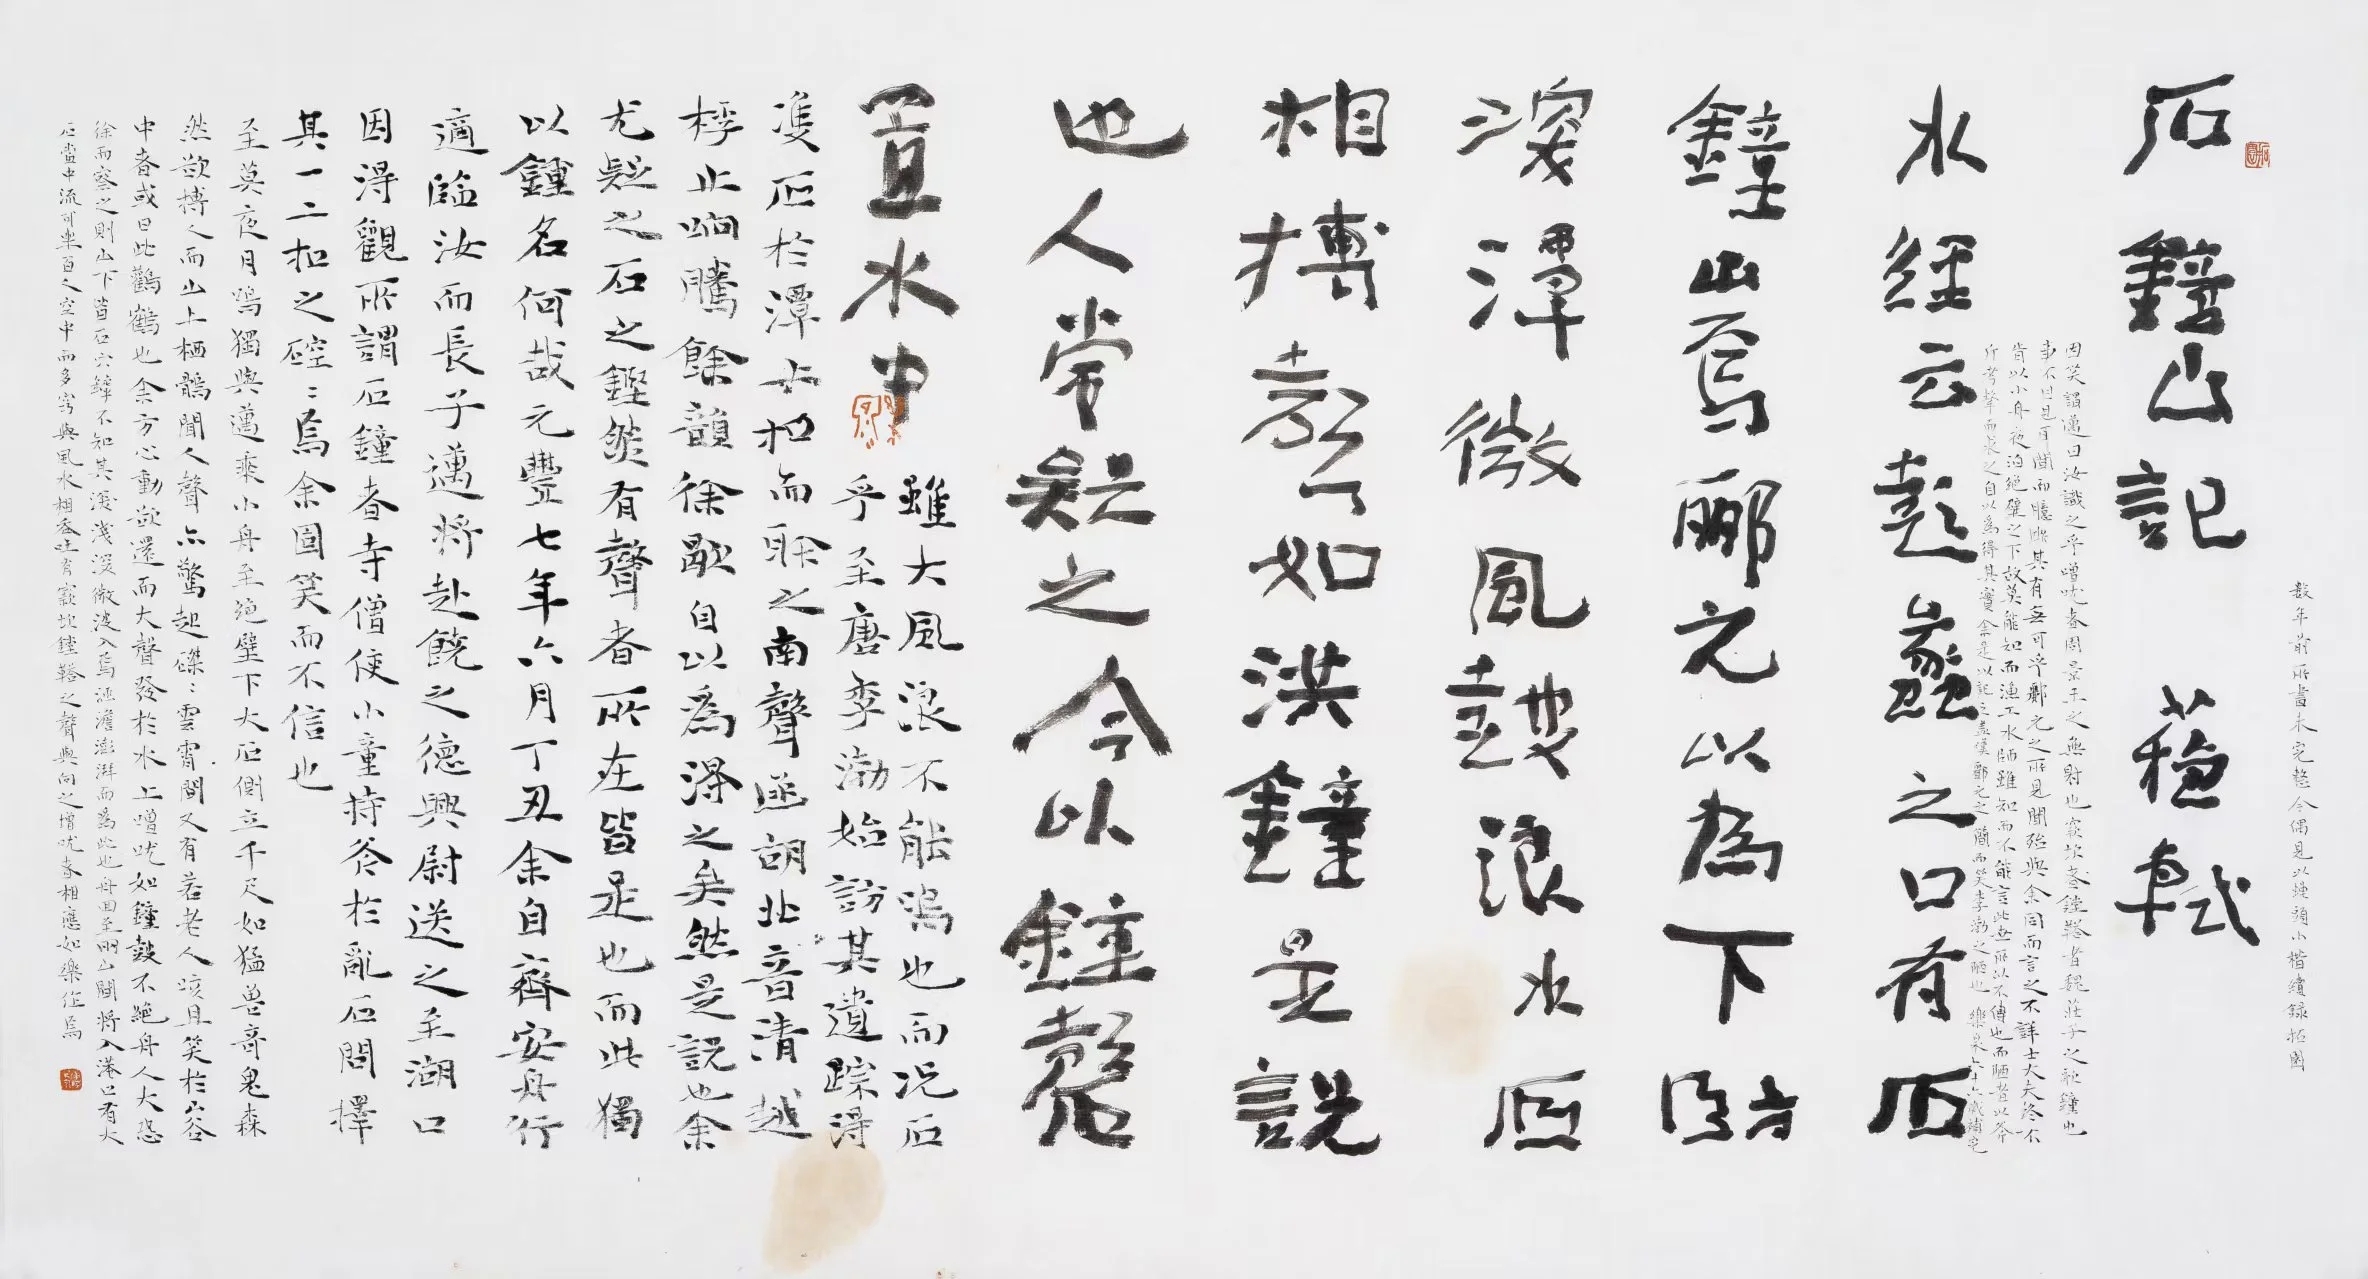 數年前所書未完整今偶見以蠅頭小楷續録拓園
石鐘山記 蘇軾
因笑謂邁曰汝識之乎噌吰者周景王之無射也窾坎鏜鞳者魏莊子之歌鐘也
事不目見耳聞而臆斷其有無可乎酈元之所見聞殆與余同而言之不詳士大夫終不
肯以小舟夜泊絕壁之下故莫能知而漁工水師雖知而不能言此世所以不傳也而陋者以斧
斤考擊而求之自以為得其實余是以記之蓋嘆酈元之簡而笑李渤之陋也 樂泉六十六歲補
水經云彭蠡之口有石
鐘山焉酈元以為下臨
深潭微風鼓浪水石
相搏聲如洪鐘是說
也人常疑之今以鐘磬
置水中
雖大風浪不能鳴也而况石
乎至唐李渤始訪其遺踪得
雙石於潭上扣而聆之南聲函胡北音清越
桴止响騰餘韻徐歇自以為得之矣然是說也余
尤疑之石之鏗然有聲者所在皆是也而此獨
以鐘名何哉元豐七年六月丁丑余自齊安舟行
適臨汝而長子邁將赴饒之德興尉送之至湖口
因得觀所謂石鐘者寺僧使小童持斧於亂石間擇
其一二扣之硿〻焉余固笑而不信也
至莫夜月鳴獨與邁乘小舟至絕壁下大石側立千尺如猛兽奇鬼森
然欲搏人而山上栖鶻聞人聲亦驚起磔〻雲霄間又有若老人咳且笑於山谷
中者或曰此鸛鶴也余方心動欲還而大聲發於水上噌吰如鐘鼓不絕舟人大恐
徐而察之則山下皆石穴罅不知其深淺微波入焉涵澹澎湃而為此也舟回至兩山間將入港口有大
石當中流可坐百人空中而多竅與風水相吞吐有窾坎鏜鞳之聲與向之噌吰者相應如樂作焉